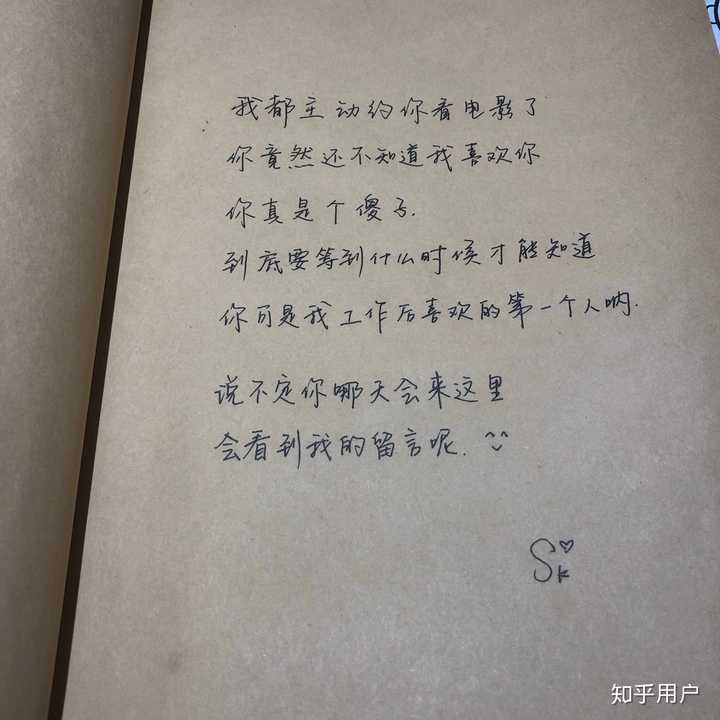 我都主动约你看电影了
你竟然还不知道我喜欢你
你真是个傻子.
到底要等到什么时候才能知道
你可是我工作后喜欢的第一个人呐.
说不定你哪天会来这里
会看到我的留言呢. ^^
S♡k
知乎用户